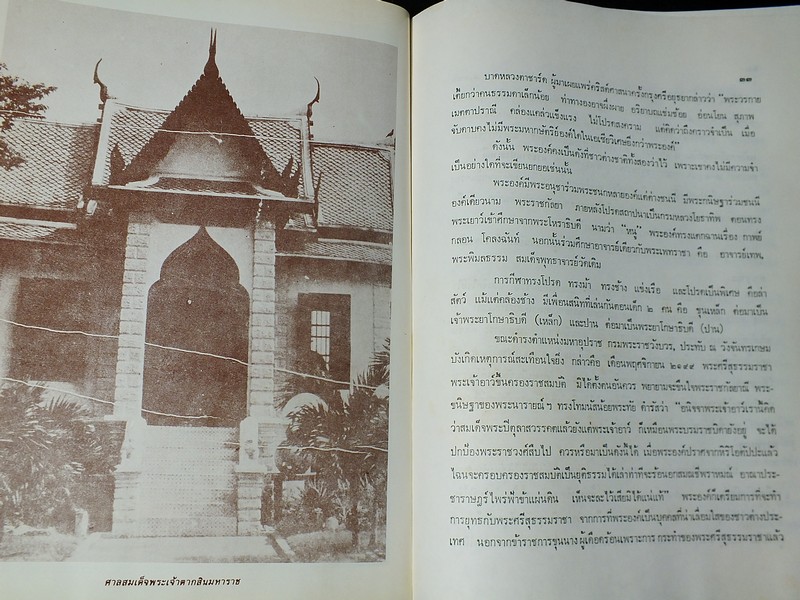 ศาลสมเด็จพระเจ้าตากสินมหาราช
๓๓
บาดหลวงตาชาร์ด ผู้มาเผยแพร่คริสต์ศาสนาครั้งกรุงศรีอยุธยากล่าวว่า "พระวรกาย
เตี้ยกว่าคนธรรมดาเล็กน้อย ท่าทางองอาจผึ่งผาย อริยาบถแช่มช้อย อ่อนโยน สุภาพ
เมตตาปราณี คล่องแคล่วแข็งแรง ไม่โปรดสงคราม แต่คิดว่าถึงคราวจำเป็น เมื่อ
จับดาบคงไม่มีพระมหากษัตริย์องค์ใดในเอเซียวิเศษยิ่งกว่าพระองค์"
ดังนั้น พระองค์คงเป็นดังที่ชาวต่างชาติทั้งสองว่าไว้ เพราะเขาคงไม่มีความจำ
เป็นอย่างใดที่จะเขียนยกยอเช่นนั้น
พระองค์มีพระอนุชาร่วมพระชนกหลายองค์แต่ต่างชนนี มีพระกนิษฐาร่วมชนนี
องค์เดียวนาม พระราชกัลยา ภายหลังโปรดสถาปนาเป็นกรมหลวงโยธาทิพ ตอนทรง
พระเยาว์เข้าศึกษาจากพระโหราธิบดี นามว่า "หนู" พระองค์ทรงแตกฉานเรื่อง กาพย์
กลอน โคลงฉันท์ นอกนั้นร่วมศึกษาอาจารย์เดียวกับพระเพทราชา คือ อาจารย์เทพ,
พระพิมลธรรม สมเด็จพุทธาจารย์วัดเดิม
การกีฬาทรงโปรด ทรงม้า ทรงช้าง แข่งเรือ และโปรดเป็นพิเศษ คือล่า
สัตว์ แม้แต่คล้องช้าง มีเพื่อนสนิทที่เล่นกันตอนเด็ก ๒ คน คือ ขุนเหล็ก ต่อมาเป็น
เจ้าพระยาโกษาธิบดี (เหล็ก) และปาน ต่อมาเป็นพระยาโกษาธิบดี (ปาน)
ขณะดำรงตำแหน่งมหาอุปราช กรมพระราชวังบวร, ประทับ ณ วังจันทรเกษม
บังเกิดเหตุการณ์สะเทือนใจยิ่ง กล่าวคือ เดือนพฤศจิกายน ๒๑๙๙ พระศรีสุธรรมราชา
พระเจ้าอาว์ขึ้นครองราชสมบัติ มิได้ตั้งตนอันควร พยายามจะขืนใจพระราชกัลยาณี พระ-
ขนิษฐาของพระนารายณ์ฯ ทรงโทมนัสน้อยพระทัย ดำรัสว่า "อนิจจาพระเจ้าอาว์เรานี้คิด
ว่าสมเด็จพระบิตุลาสวรรคตแล้วยังแต่พระเจ้าอาว์ ก็เหมือนพระบรมราชบิดายังอยู่ จะได้
ปกป้องพระราชวงศ์สืบไป ควรหรือมาเป็นดังนี้ได้ เมื่อพระองค์ปราศจากหิริโอตัปปะแล้ว
ไฉนจะครอบครองราชสมบัติเป็นยุติธรรมได้เล่าก็จะร้อนอกสมณชีพราหมณ์ อาณาประ-
ชาราษฎร์ไพร่ฟ้าข้าแผ่นดิน เห็นจะละไว้เสียมิได้แน่แท้" พระองค์ก็เตรียมการที่จะทำ
การยุทธกับพระศรีสุธรรมราชา จากการที่พระองค์เป็นบุคคลที่น่าเลื่อมใสของชาวต่างประ-
เทศ นอกจากข้าราชการขุนนางผู้เดือดร้อนเพราะการกระทำของพระศรีสุธรรมราชาแล้ว